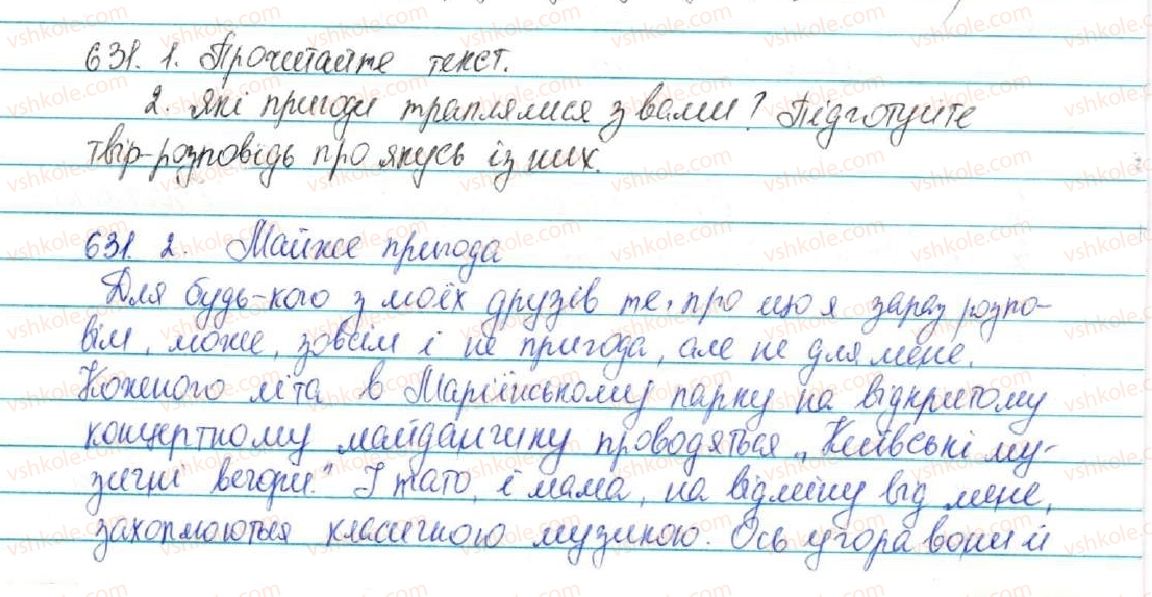 631. 1. Прочитайте текст.
2. Які пригоди траплялися з вами? Підготуйте
твір-розповідь про якусь із них.
631. 2. Майже пригода
Для будь-кого з моїх друзів те, про що я зараз розпо-
вім, може, зовсім і не пригода, але не для мене.
Кожного літа в Маріїнському парку на відкритому
концертному майданчику проводяться „Київські му-
зичні вечори." І тато, і мама, на відміну від мене,
захоплюються класичною музикою. Ось учора вони й